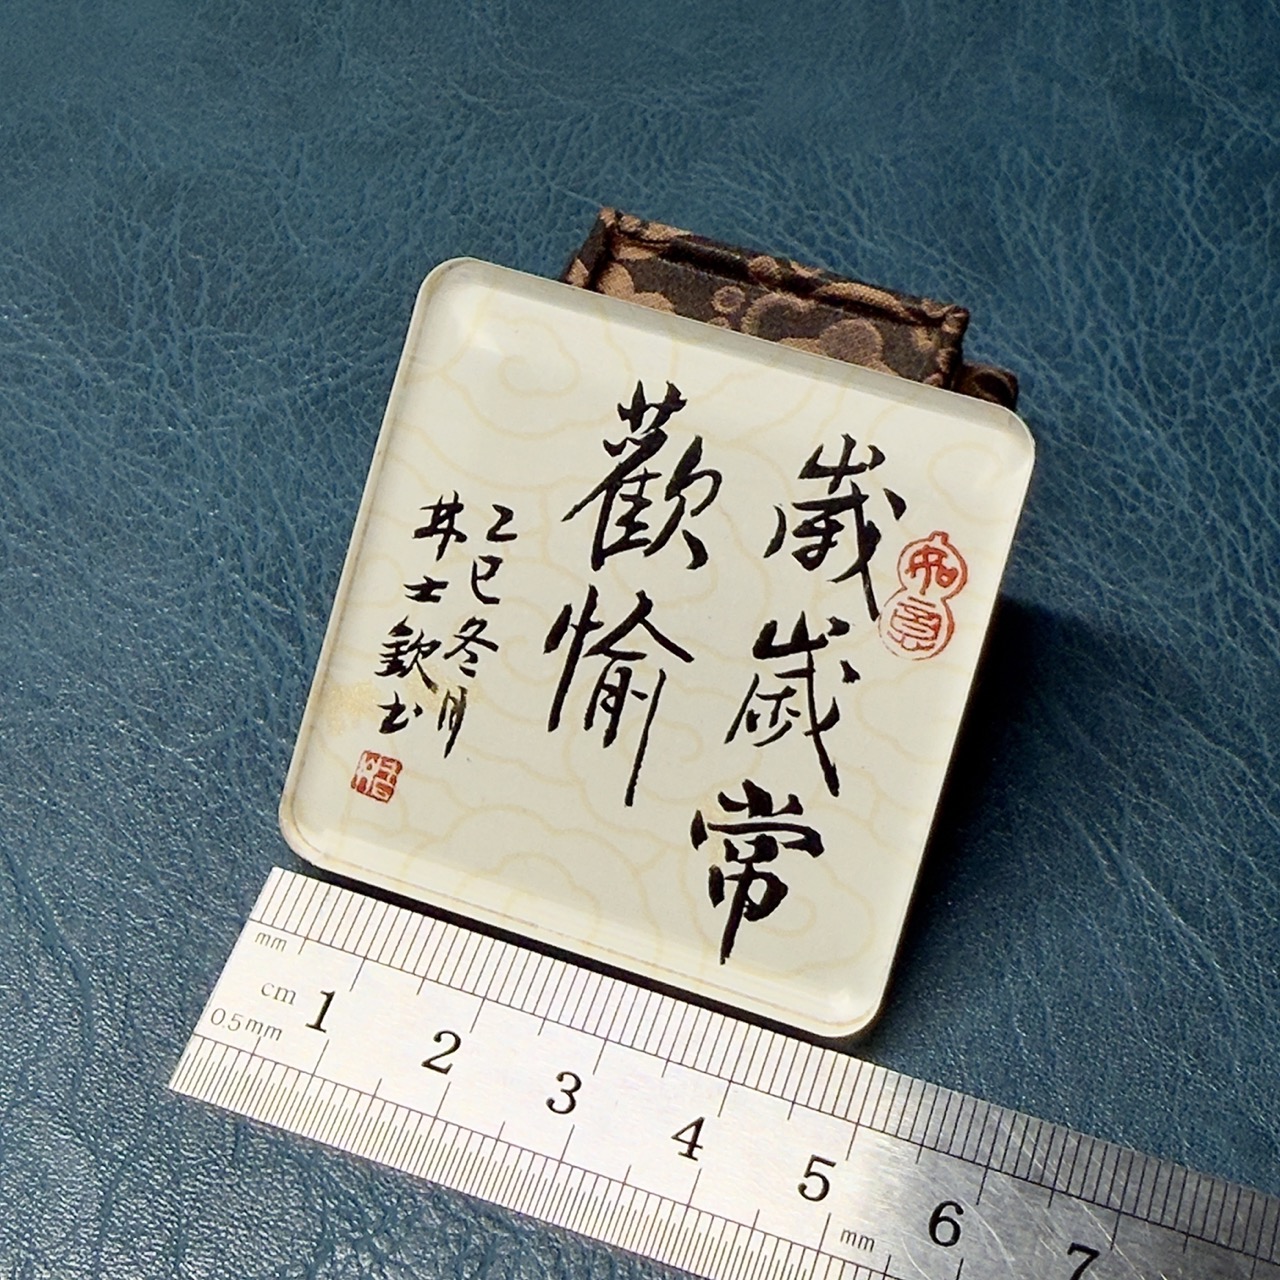 歲歲常
歡愉
乙巳冬月
井士欽书
如意
mm
cm 1 2 3 4 5 6 7
0.5mm
mm